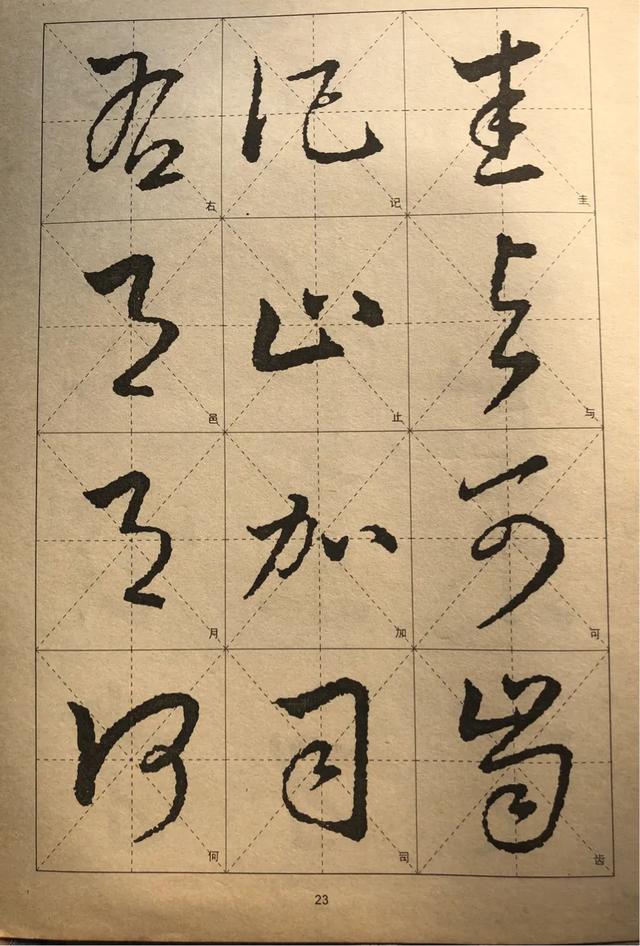 圭与可齿
记止加司
右邑月何
23